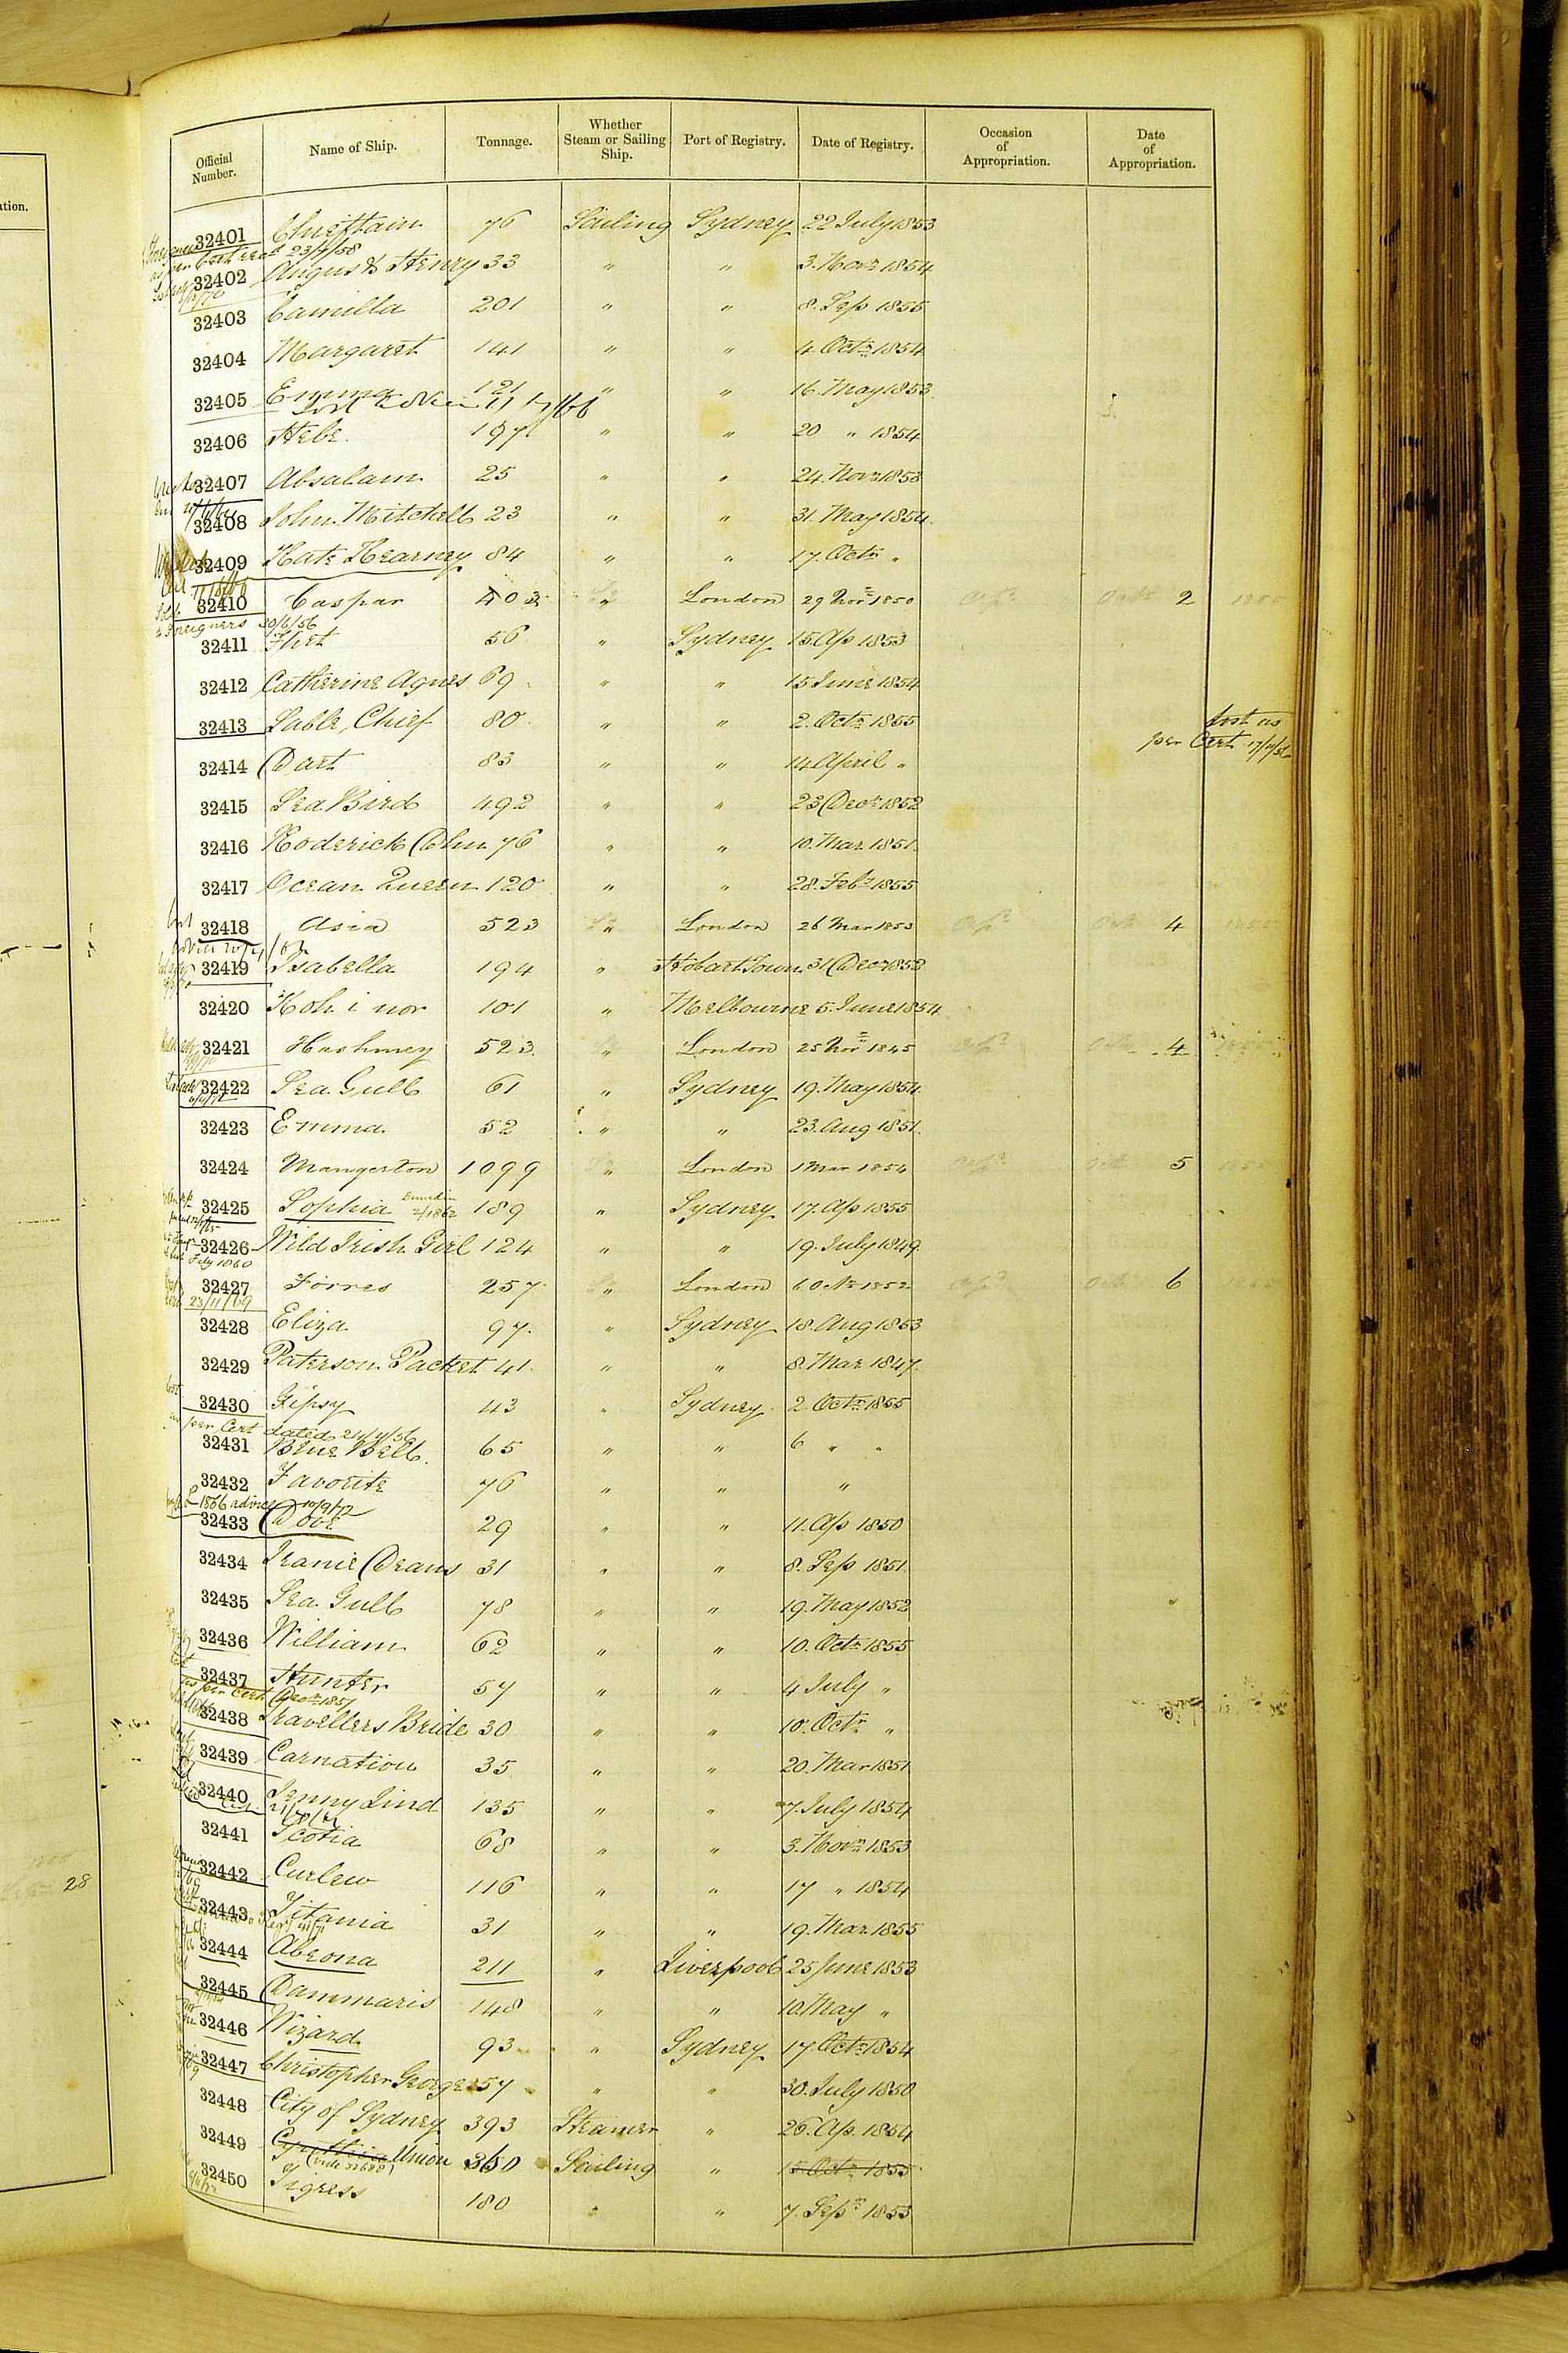 ation.
28
Official Number. Name of Ship. Tonnage. Whether Steam or Sailing Ship. Port of Registry. Date of Registry. Occasion of Appropriation. Date of Appropriation.
32401 Chieftain 76 Sailing Sydney 22 July 1853
23/7/58
32402 Angus & Henry 33 " " 3. Novr 1854
32403 Camilla 201 " " 8. Sep 1855
32404 Margaret 141 " " 4. Octr 1854
32405 Emma 121 " " 16. May 1853
32406 Hebe 197 " " 20 " 1854
32407 Absalam 25 " " 24. Novr 1853
32408 John Mitchell 23 " " 31. May 1854
32409 Kate Kearney 84 " " 17. Octr "
32410 Caspar 403 " London 29 Novr 1850 2
to Foreigners 30/6/56
32411 Flirt 56 " Sydney 15 Ap 1853
32412 Catherine Agnes 69 " " 15 June 1854
32413 Sable Chief 80 " " 2. Octr 1855
lost as
per Cert
32414 Dart 83 " " 14 April "
32415 Sea Bird 492 " " 23 Decr 1852
32416 Roderick Dhu 76 " " 10. Mar 1851
32417 Ocean Queen 120 " " 28. Feby 1855
32418 Asia 523 " London 26 Mar 1853 4
32419 Isabella 194 " Hobart Town 31 Decr 1852
32420 Koh i nor 101 " Melbourne 5. June 1854
32421 Hashmey 523 " London 25 Novr 1845 4
32422 Sea Gull 61 " Sydney 19. May 1854
32423 Emma 52 " " 23. Aug 1851
32424 Mangerton 1099 " London 1 Mar 1854 5
32425 Sophia Dunedin 2/1862 189 " Sydney 17. Ap 1855
32426 Wild Irish Girl 124 " " 19. July 1849
32427 Forres 257 " London 6 Oct 1852 6
23/11/69
32428 Eliza 97 " Sydney 18. Aug 1853
32429 Paterson Packet 41 " " 8. Mar 1847
32430 Gipsy 43 " Sydney 2 Octr 1855
as per Cert dated
32431 Blue Bell 65 " " 6 " "
32432 Favorite 76 " " "
32433 Dove 29 " " 11. Ap 1850
32434 Jeanie Deans 31 " " 8. Sep 1851
32435 Sea Gull 78 " " 19. May 1852
32436 William 62 " " 10. Octr 1855
32437 Hunter 57 " " 4 July "
as per Cert Decr 1857
32438 Travellers Bride 30 " " 10. Octr "
32439 Carnation 35 " " 20. Mar 1851
32440 Jenny Lind 135 " " 7. July 1854
32441 Scotia 68 " " 3. Novr 1853
32442 Curlew 116 " " 17 " 1854
32443 Titania 31 " " 19. Mar 1855
32444 Abeona 211 " Liverpool 25 June 1853
32445 Dammaris 148 " " 10. May "
32446 Wizard 93 " Sydney 17. Octr 1854
32447 Christopher George 157 " " 30. July 1850
32448 City of Sydney 393 Steamer " 26. Ap. 1854
32449 Cynthia Union 360 Sailing " 15 Octr 1855
32450 Tigress 180 " " 7. Sepr 1853